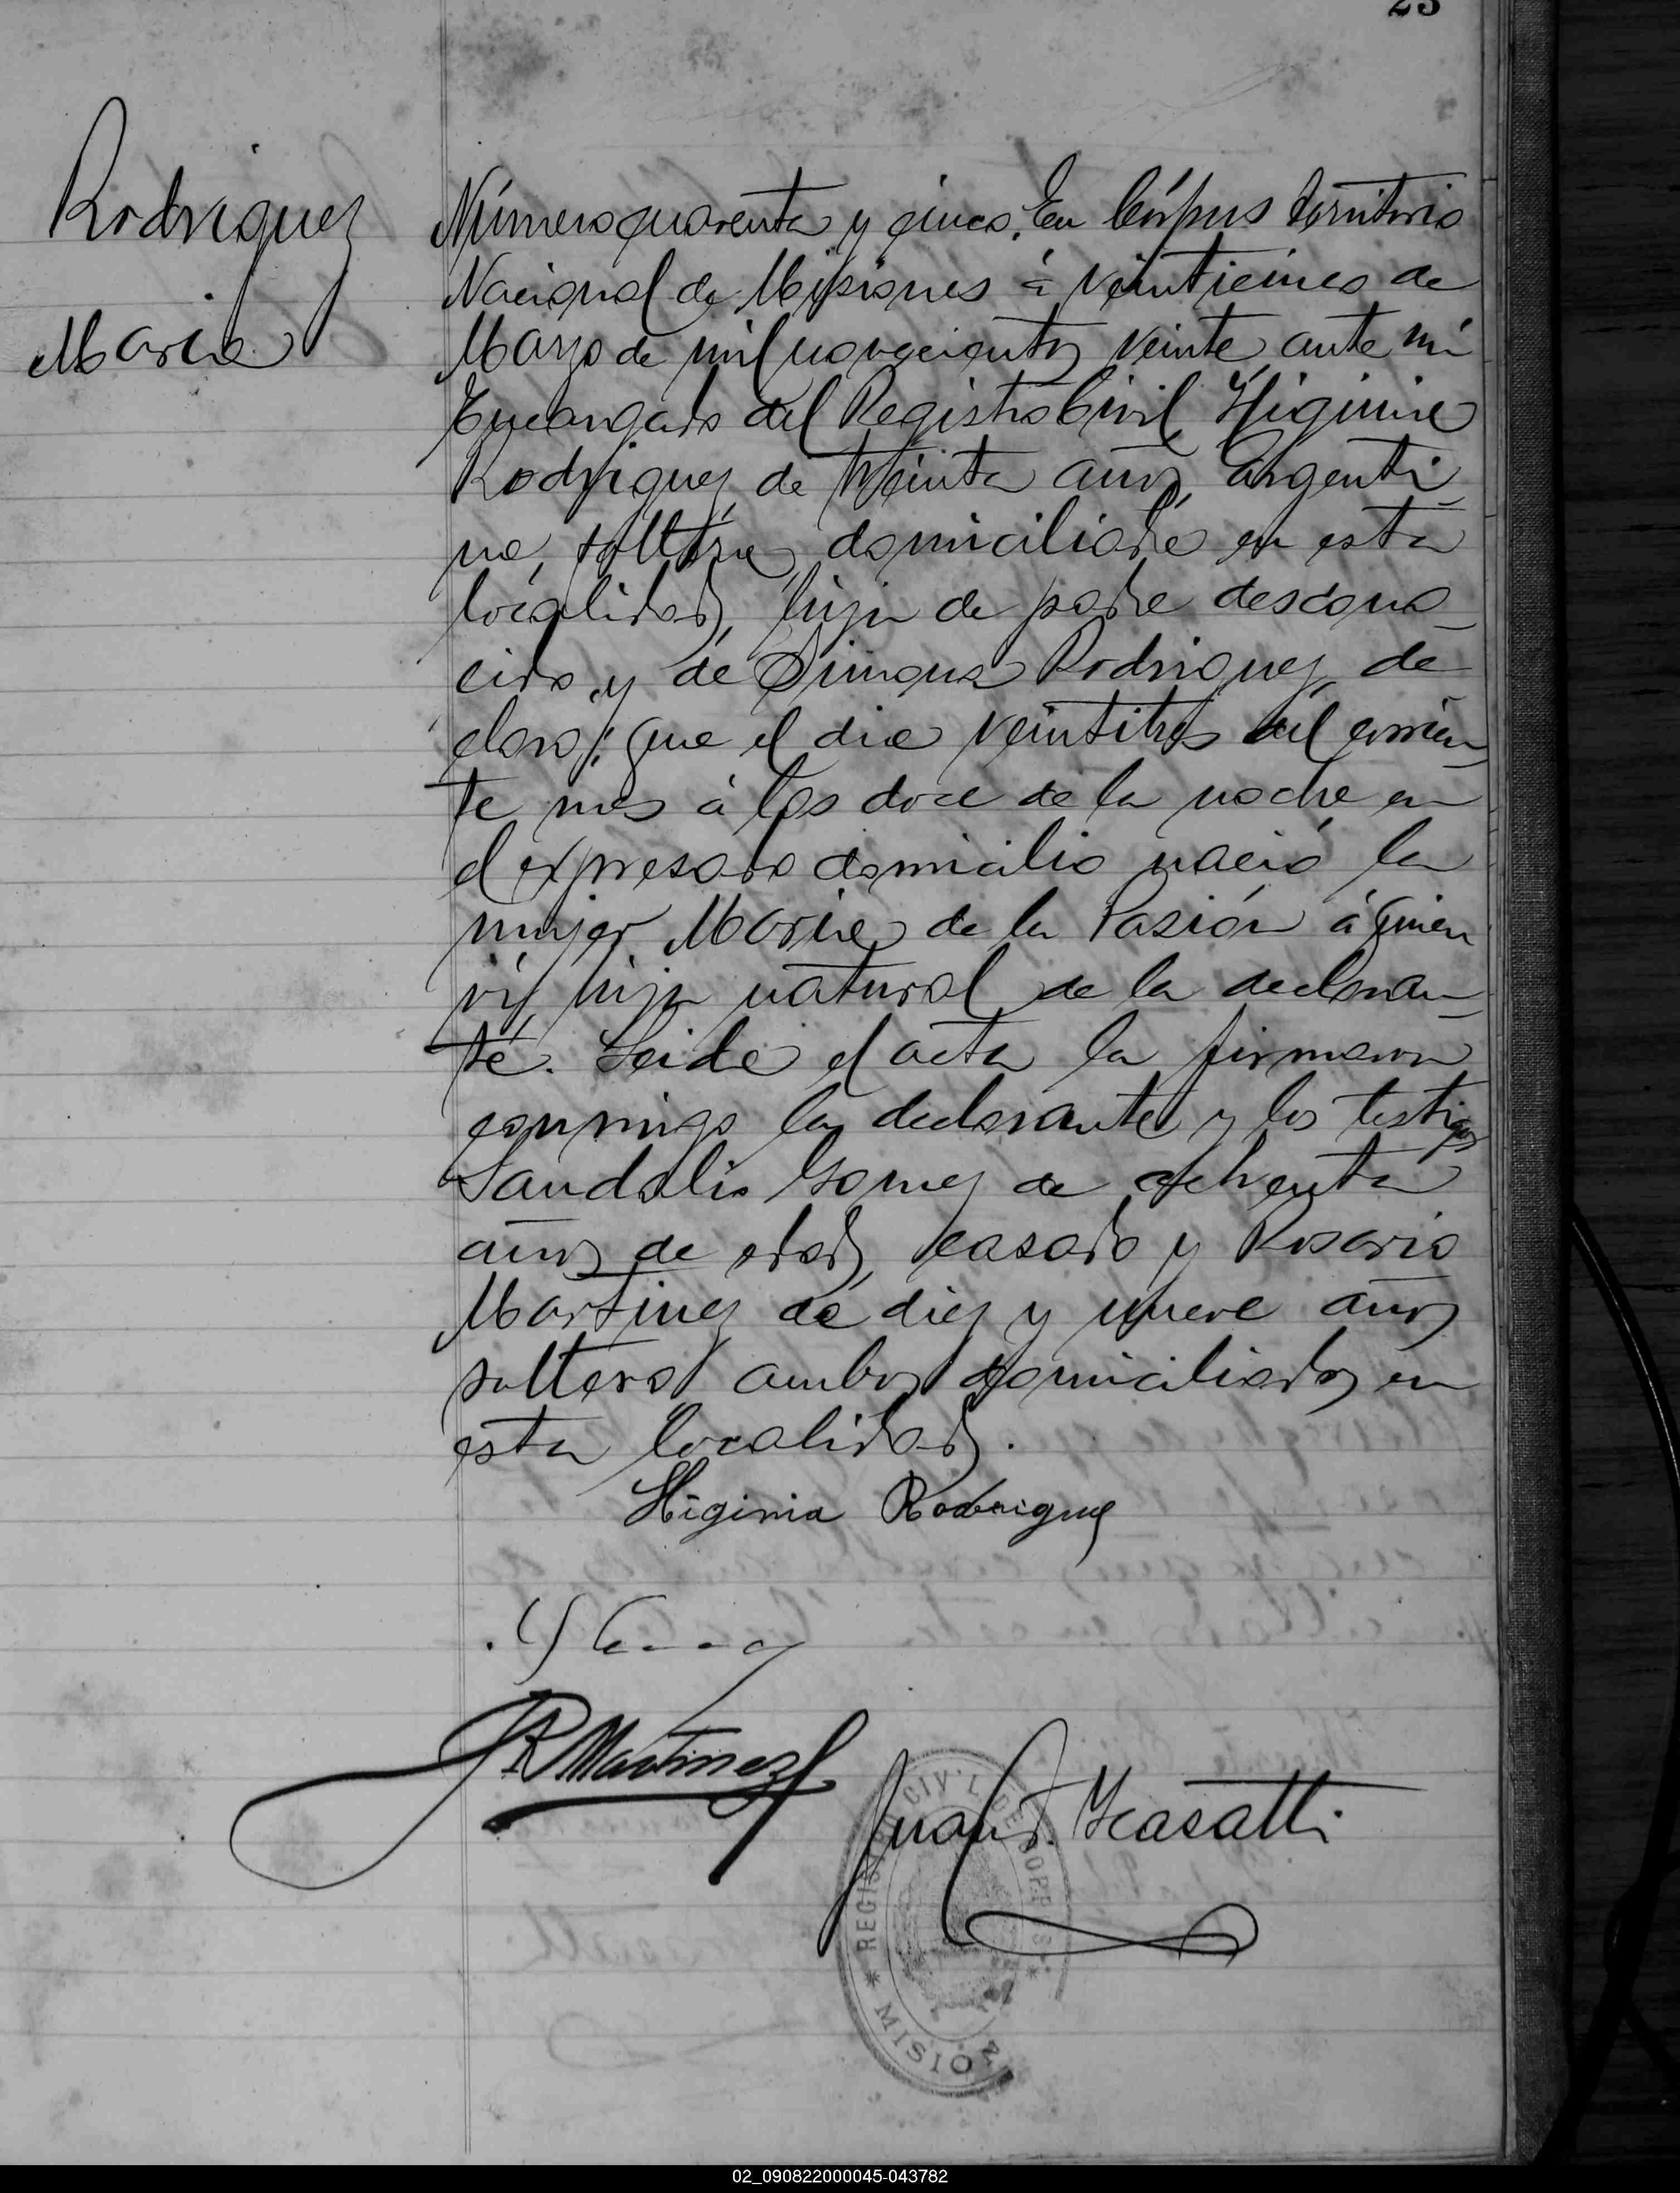 23
Rodriguez
Maria
Número cuarenta y cinco. En Córpus territorio
Nacional de Misiones á veinticinco de
Marzo de mil novecientos veinte, ante mí
Encargado del Registro Civil, Higinia
Rodriguez, de treinta años, Argenti-
na, soltera, domiciliada en esta
localidad, hija de padre descono-
cido y de Rodriguez, de
claró: Que el dia veintitres del corrien-
te mes á las doce de la noche en
el expresado domicilio nació la
mujer Maria de la Pasión á quien
ví, hija natural de la declaran-
te. Leida el acta la firmaron
conmigo la declarante y los testigos
Sandalio Gomez de ochenta
años de edad, casado y Rosario
Martinez de diez y nueve años
soltero, ambos domiciliados en
esta localidad.
Higinia Rodriguez
R Martinez
Juan
REGISTRO CIVIL DE CORPUS
* MISIONES *
02_090822000045-043782